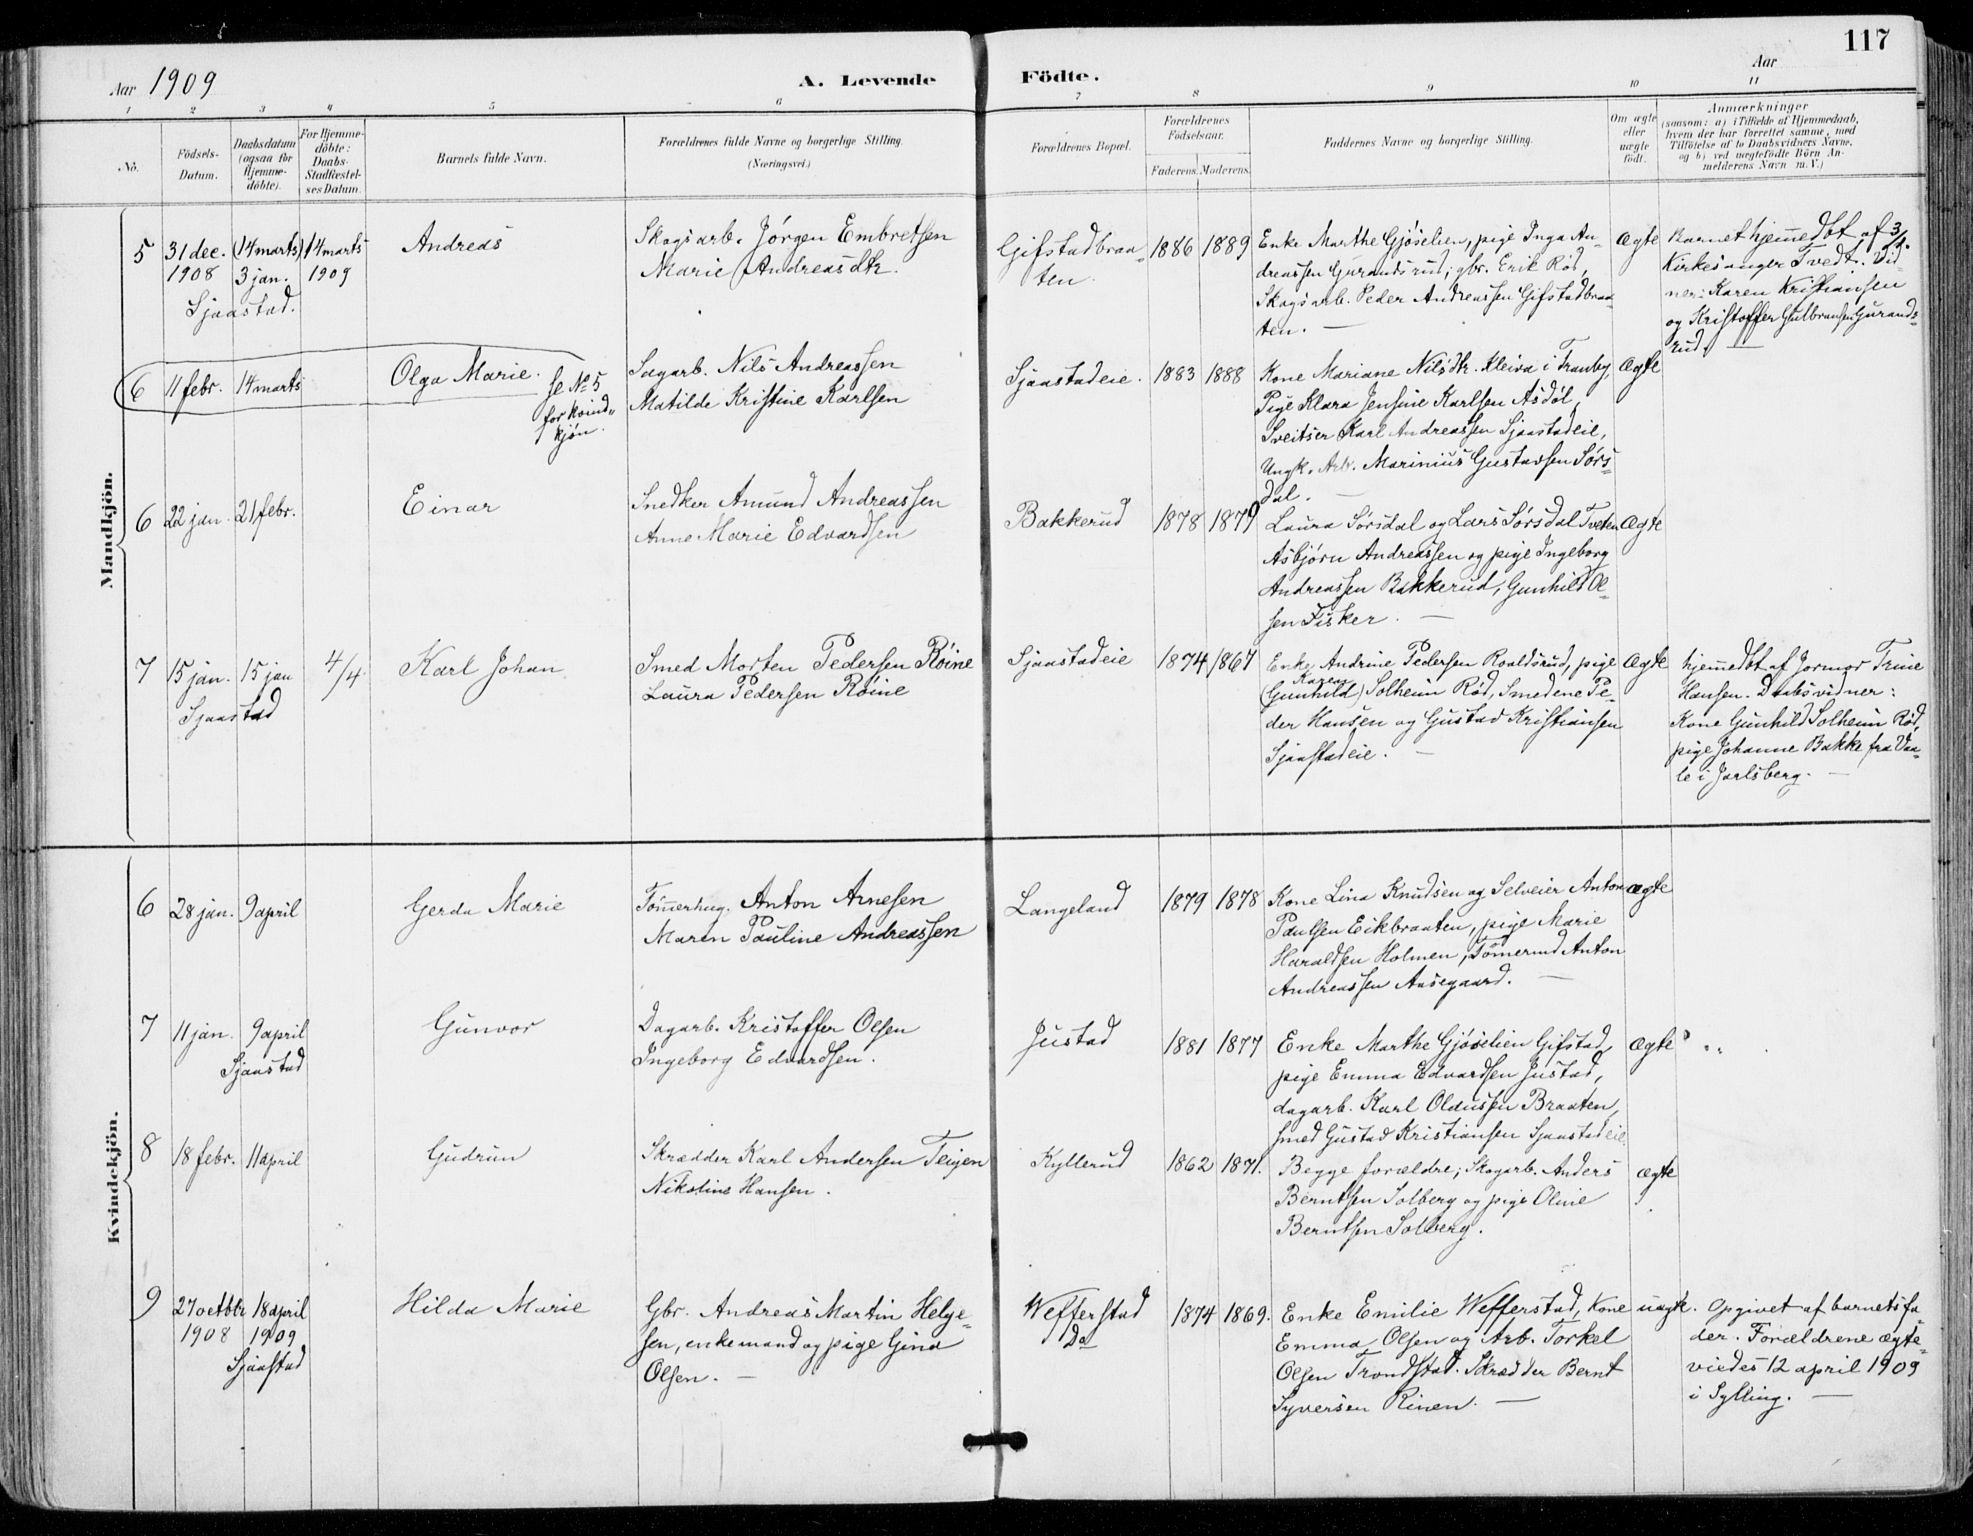 117
Aar 1909
A. Levende Födte.
Aar
1 2 3 4 5 6 7 8 9 10 11
No.
Födsels-Datum.
Daabsdatum (ogsaa for Hjemme-döbte).
For Hjemme-döbte: Daabs-Stadfæstel-ses Datum.
Barnets fulde Navn.
Forældrenes fulde Navne og borgerlige Stilling (Næringsvei.)
Forældrenes Bopæl.
Forældrenes Födselsaar.
Faderens. Moderens.
Faddernes Navne og borgerlige Stilling.
Om ægte eller uægte födt.
Anmærkninger
(saasom: a) i Tilfælde af Hjemmedaab,
hvem der har forrettet samme, med
Tilföielse af to Daabsvidners Navne,
og b) ved uægtefödte Börn An-
melderens Navn m. V.)
Mandkjön.
5
31 dec. 1908
(14 marts) 3 jan.
Sjaastad.
14 marts 1909
Andreas
Skogsarb. Jörgen Embretsen
Marie Andreasdtr.
Gifstadbraa-
ten.
1886 1889
Enke Marthe Gjöselien, pige Inga An-
dreassen Gurandsrud; gbr. Erik Röd,
Skogsarb. Peder Andreassen Gifstadbraa-
ten. —
Ægte
Barnet hjemedöbt af 3/1.
Kirkesanger Tvedt. Vid-
ner: Karen Kristiansen
og Kristoffer Gulbransen Gurands-
rud. —
6
11 febr.
14 marts
Olga Marie.
se No 5
for kvind-
kjön.
Sagarb. Nils Andreassen
Matilde Kristine Karlsen
Sjaastadeie.
1883 1888
Kone Mariane Nilsdtr. Kleiva i Tranby,
Pige Klara Jensine Karlsen Asdöl,
Sveitser Karl Andreassen Sjaastadeie,
Ungk. Arb. Marinius Gustavsen Sörs-
dal. —
Ægte
6
22 jan.
21 febr.
Einar
Snedker Amund Andreassen
Anne Marie Edvardsen
Bakkerud
1878 1879
Laura Sörsdal og Lars Sörsdal Tveten
Asbjörn Andreassen og pige Ingeborg
Andreassen Bakkerud, Gunhild Ol-
sen Fisker. —
Ægte
7
15 jan.
15 jan
Sjaastad
4/4
Karl Johan
Smed Morten Pedersen Röine
Laura Pedersen Röine
Sjaastadeie
1874 1867
Enke Andrine Pedersen Roaldsrud, pige
Karen
(Gunhild) Solheim Röd, Smedene Pe-
der Hansen og Gustav Kristiansen
Sjaastadeie. —
Ægte
hjemedöbt af Jormor Trine
Hansen. Daabsvidner:
Kone Gunhild Solheim Röd,
pige Johanne Bakke fra Vaa-
le i Jarlsberg. —
Kvindekjön.
6
28 jan.
9 april
Gerda Marie
Tömerhug. Anton Arnesen
Maren Pauline Andreassen
Langeland
1879 1878
Kone Lina Knudsen og Selveier Anton
Paulsen Eikbraaten, pige Marie
Haraldsen Holmen, Tömermd Anton
Andreassen Aasegaard. —
Ægte
7
11 jan.
9 april
Sjaastad
Gunvor
Dagarb. Kristoffer Olsen
Ingeborg Edvardsen.
Justad
1881 1877
Enke Marthe Gjöselien Gifstad,
pige Emma Edvardsen Justad,
dagarb. Karl Oldussen Braaten,
smed Gustav Kristiansen Sjaastadeie.
Ægte
8
18 febr.
11 april
Gudrun
Skrædder Karl Andersen Teigen
Nikoline Hansen.
Kyllerud
1862 1871.
Begge forældre; Skogarb. Anders
Berntsen Solberg og pige Oline
Berntsen Solberg.
Ægte
9
27 octbr 1908
18 april 1909
Sjaastad
Hilda Marie
Gbr. Andreas Martin Helge-
sen, enkemand og pige Gina
Olsen. —
Wefferstad
Do
1874 1869.
Enke Emilie Wefferstad, Kone
Emma Olsen og Arb. Torkel
Olsen Trondstad. Skrædder Bernt
Syversen Rinen. —
uægte.
Opgivet af barnets fa-
der. Forældrene ægte-
viedes 12 april 1909
i Sylling. —